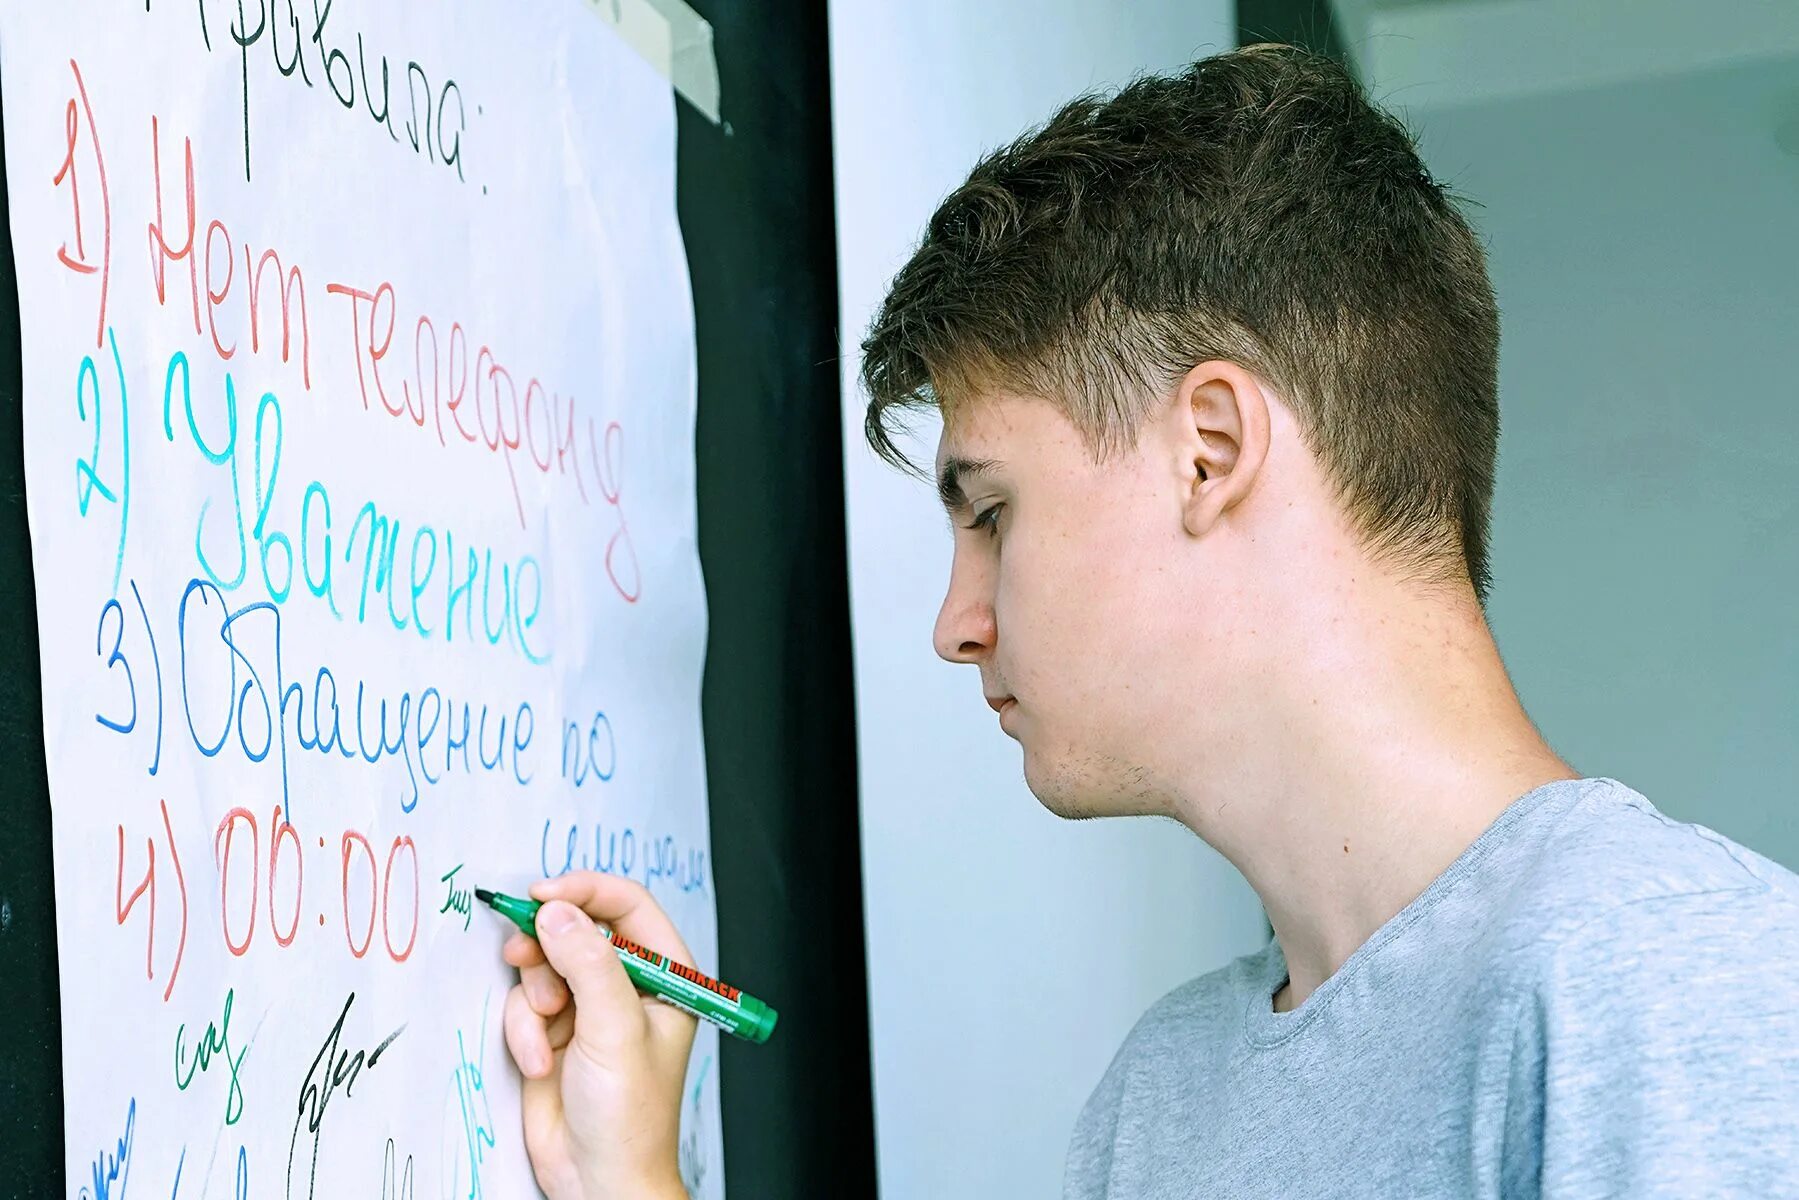 Правила:
1) Нет телефону
2) Уважение
3) Обращение по
именам
4) 00:00
MULTI MARKER